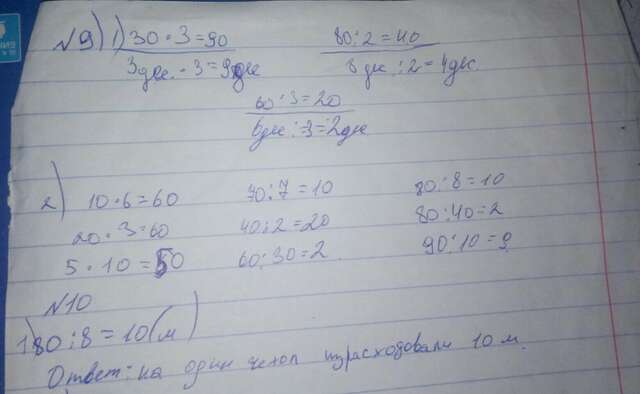 №9) 1) 30 · 3 = 90 80 : 2 = 40
3дес. · 3 = 9дес 8 дес : 2 = 4дес.
60 : 3 = 20
6дес : 3 = 2дес
2) 10 · 6 = 60 70 : 7 = 10 80 : 8 = 10
20 · 3 = 60 40 : 2 = 20 80 : 40 = 2
5 · 10 = 50 60 : 30 = 2 90 : 10 = 9
№10
1) 80 : 8 = 10 (м)
Ответ: на один чехол израсходовали 10 м.